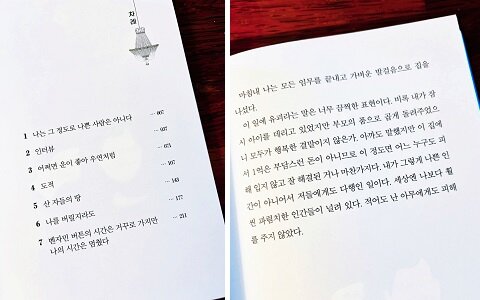 차례
1 나는 그 정도로 나쁜 사람은 아니다 … 007
2 인터뷰 … 037
3 어쩌면 운이 좋아 우연처럼
4 도적
5 산 자들의 땅 … 143
6 나를 버릴지라도 … 177
7 벤자민 버튼의 시간은 거꾸로 가지만 … 211
나의 시간은 멈췄다
마침내 나는 모든 임무를 끝내고 가벼운 발걸음으로 집을
나섰다.
이 일에 유괴라는 말은 너무 끔찍한 표현이다. 비록 내가 잠
시 아이를 데리고 있었지만 부모의 품으로 곱게 돌려주었으
니 모두가 행복한 결말이지 않은가. 아까도 말했지만 이 집에
서 1억은 부담스런 돈이 아니므로 이 정도면 어느 누구도 피
해 입지 않고 잘 해결된 거나 마찬가지다. 내가 그렇게 나쁜 인
간이 아니어서 저들에게도 다행인 일이다. 세상엔 나보다 훨
씬 파렴치한 인간들이 널려 있다. 적어도 난 아무에게도 피해
를 주지 않았다.